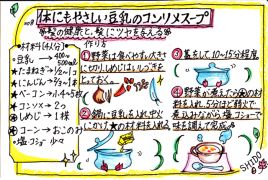 体にもやさしい豆乳のコンソメスープ
髪の健康と、髪にツヤを与える
★材料(4人分)
豆乳 → 400~500ml
★たまねぎ → 1/2~1コ
★にんじん → 1/2~1本
★ベーコン → 4~5枚
★コンソメ → 2つ
しめじ → 1株
コーン → おこのみ
塩・コショウ 少々
作り方
①野菜は食べやすい大きさに切り、しめじはいしづきをとっておく。
②鍋に豆乳を入れ、中火にかけ、★の材料を入れる。
③蓋をして、10~15分程度
④野菜が煮えたら◎の材料を入れ、5分ほど弱火で煮込みながら塩・コショーで味を調えて完成
SHIDO